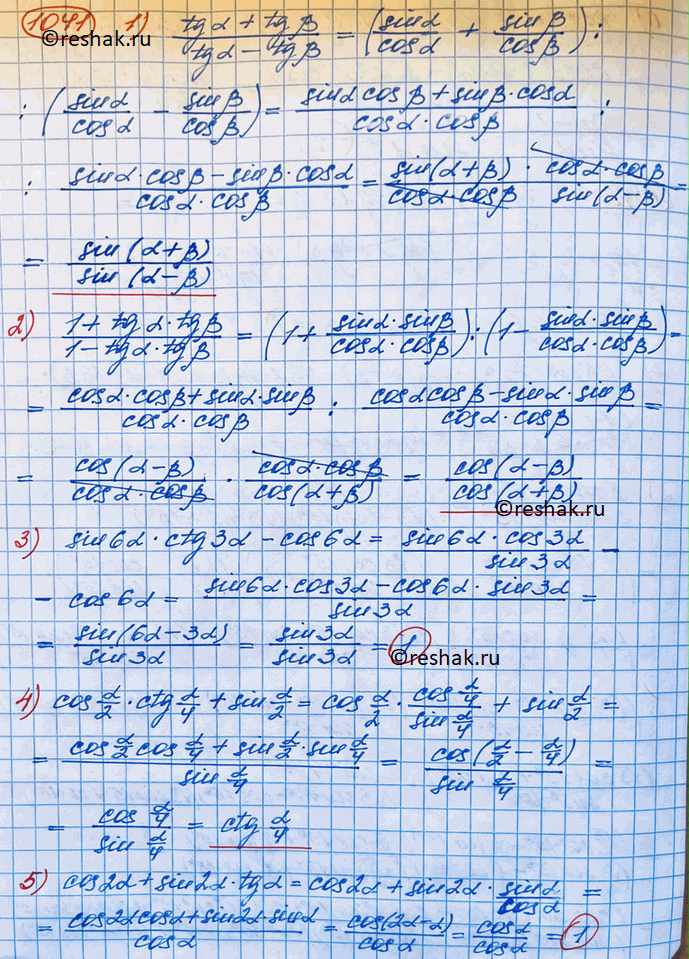 1041 1) (tgα + tgβ)/(tgα − tgβ) = (sinα/cosα + sinβ/cosβ) :
: (sinα/cosα − sinβ/cosβ) = (sinα cosβ + sinβ·cosα)/(cosα·cosβ) :
: (sinα·cosβ − sinβ·cosα)/(cosα·cosβ) = sin(α+β)/(cosα·cosβ) · (cosα·cosβ)/sin(α−β) =
= sin(α+β)/sin(α−β)
2) (1 + tgα·tgβ)/(1 − tgα·tgβ) = (1 + (sinα·sinβ)/(cosα·cosβ)) : (1 − (sinα·sinβ)/(cosα·cosβ)) =
= (cosα·cosβ + sinα·sinβ)/(cosα·cosβ) : (cosα cosβ − sinα·sinβ)/(cosα·cosβ) =
= cos(α−β)/(cosα·cosβ) · (cosα·cosβ)/cos(α+β) = cos(α−β)/cos(α+β)
reshak.ru
3) sin6α·ctg3α − cos6α = (sin6α·cos3α)/sin3α −
− cos6α = (sin6α·cos3α − cos6α·sin3α)/sin3α =
= sin(6α−3α)/sin3α = sin3α/sin3α = 1
reshak.ru
4) cos α/2 · ctg α/4 + sin α/2 = cos α/2 · (cos α/4)/(sin α/4) + sin α/2 =
= (cos α/2 cos α/4 + sin α/2 · sin α/4)/(sin α/4) = cos(α/2 − α/4)/(sin α/4) =
= (cos α/4)/(sin α/4) = ctg α/4
5) cos2α + sin2α·tgα = cos2α + sin2α · sinα/cosα =
= (cos2α cosα + sin2α·sinα)/cosα = cos(2α−α)/cosα = cosα/cosα = 1